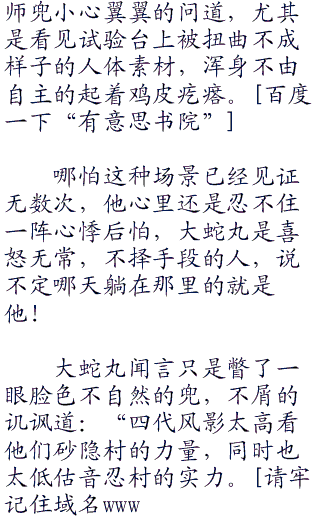 师兜小心翼翼的问道，尤其
是看见试验台上被扭曲不成
样子的人体素材，浑身不由
自主的起着鸡皮疙瘩。[百度
一下“有意思书院”]
哪怕这种场景已经见证
无数次，他心里还是忍不住
一阵心悸后怕，大蛇丸是喜
怒无常，不择手段的人，说
不定哪天躺在那里的就是
他！
大蛇丸闻言只是瞥了一
眼脸色不自然的兜，不屑的
讥讽道：“四代风影太高看
他们砂隐村的力量，同时也
太低估音忍村的实力。[请牢
记住域名www